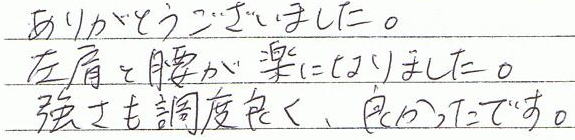 ありがとうございました。
左肩と腰が楽になりました。
強さも調度良く、良かったです。